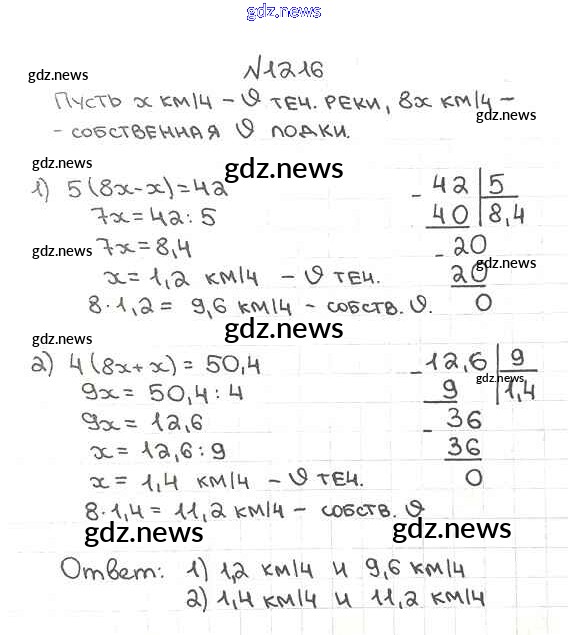 gdz.news
№1216
gdz.news
Пусть x км/ч – υ теч. реки, 8x км/ч –
gdz.news
– собственная υ лодки.
gdz.news
1) 5(8x-x)=42
- 42 | 5
7x=42:5
40 | 8,4
gdz.news
7x=8,4
- 20
gdz.news
x=1,2 км/ч – υ теч.
20
8·1,2= 9,6 км/ч – собств. υ.
0
gdz.news
gdz.news
2) 4(8x+x)=50,4
- 12,6 | 9
gdz.news
9x=50,4:4
9 | 1,4
9x=12,6
- 36
x=12,6:9
36
x=1,4 км/ч – υ теч.
0
8·1,4=11,2 км/ч – собств. υ
gdz.news
gdz.news
Ответ: 1) 1,2 км/ч и 9,6 км/ч
2) 1,4 км/ч и 11,2 км/ч